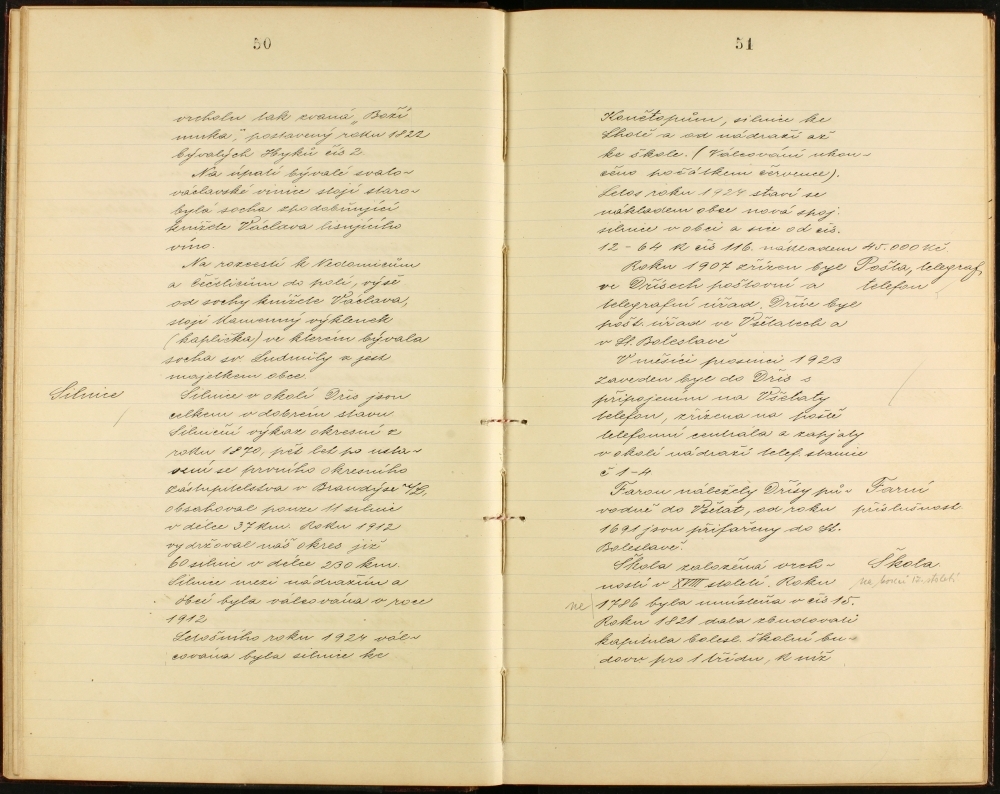 50
vrcholu tak zvaná „Boží
muka“, postavený roku 1822
bývalých Hyků čís 2.
Na úpatí bývalé svato-
václavské vinice stojí staro-
bylá socha zpodobňující
knížete Václava lisujícího
víno.
Na rozcestí k Nedomicům
a Čečelicím do polí, výše
od sochy knížete Václava,
stojí kamenný výklenek
(kaplička) ve kterém bývala
socha sv Ludmily a jest
majetkem obce.
Silnice
Silnice v okolí Dřís jsou
celkem v dobrém stavu.
Silniční výkaz okresní z
roku 1870, pět let po usta-
vení se prvního okresního
zastupitelstva v Brandýse n/L,
obsahoval pouze 11 silnic
v délce 37 km. Roku 1912
vydržoval náš okres již
60 silnic v délce 230 km.
Silnice mezi nádražím a
obcí byla válcována v roce
1912.
Letošního roku 1924 vál-
cována byla silnice ke
51
Konětopům, silnice ke
Lhotě a od nádraží až
ke škole. (Válcování ukon-
čeno počátkem července).
Letos roku 1924 staví se
nákladem obce nová spoj.
silnice v obci a sice od čís.
12-64 k čís 116. nákladem 45.000 Kč.
Roku 1907 zřízen byl
Pošta, telegraf,
ve Dřísech poštovní a
telefon
telegrafní úřad. Dříve byl
pošt. úřad ve Všetatech a
v St. Boleslavi
V měsíci prosinci 1923
zaveden byl do Dřís s
připojením na Všetaty
telefon, zřízena na poště
telefonní centrála a zapjaty
v okolí nádraží telef. stanice
č 1-4
Farou náležely Dřísy pů-
Farní
vodně do Všetat, od roku
příslušnost
1691 jsou přifařeny do St.
Boleslavě.
Škola založena vrch-
Škola
ností v XVIII století. Roku
na konci 17. století
ne
1786 byla umístěna v čís 15.
Roku 1821 dala zbudovati
kapitula bolesl. školní bu-
dovu pro 1 třídu, k níž